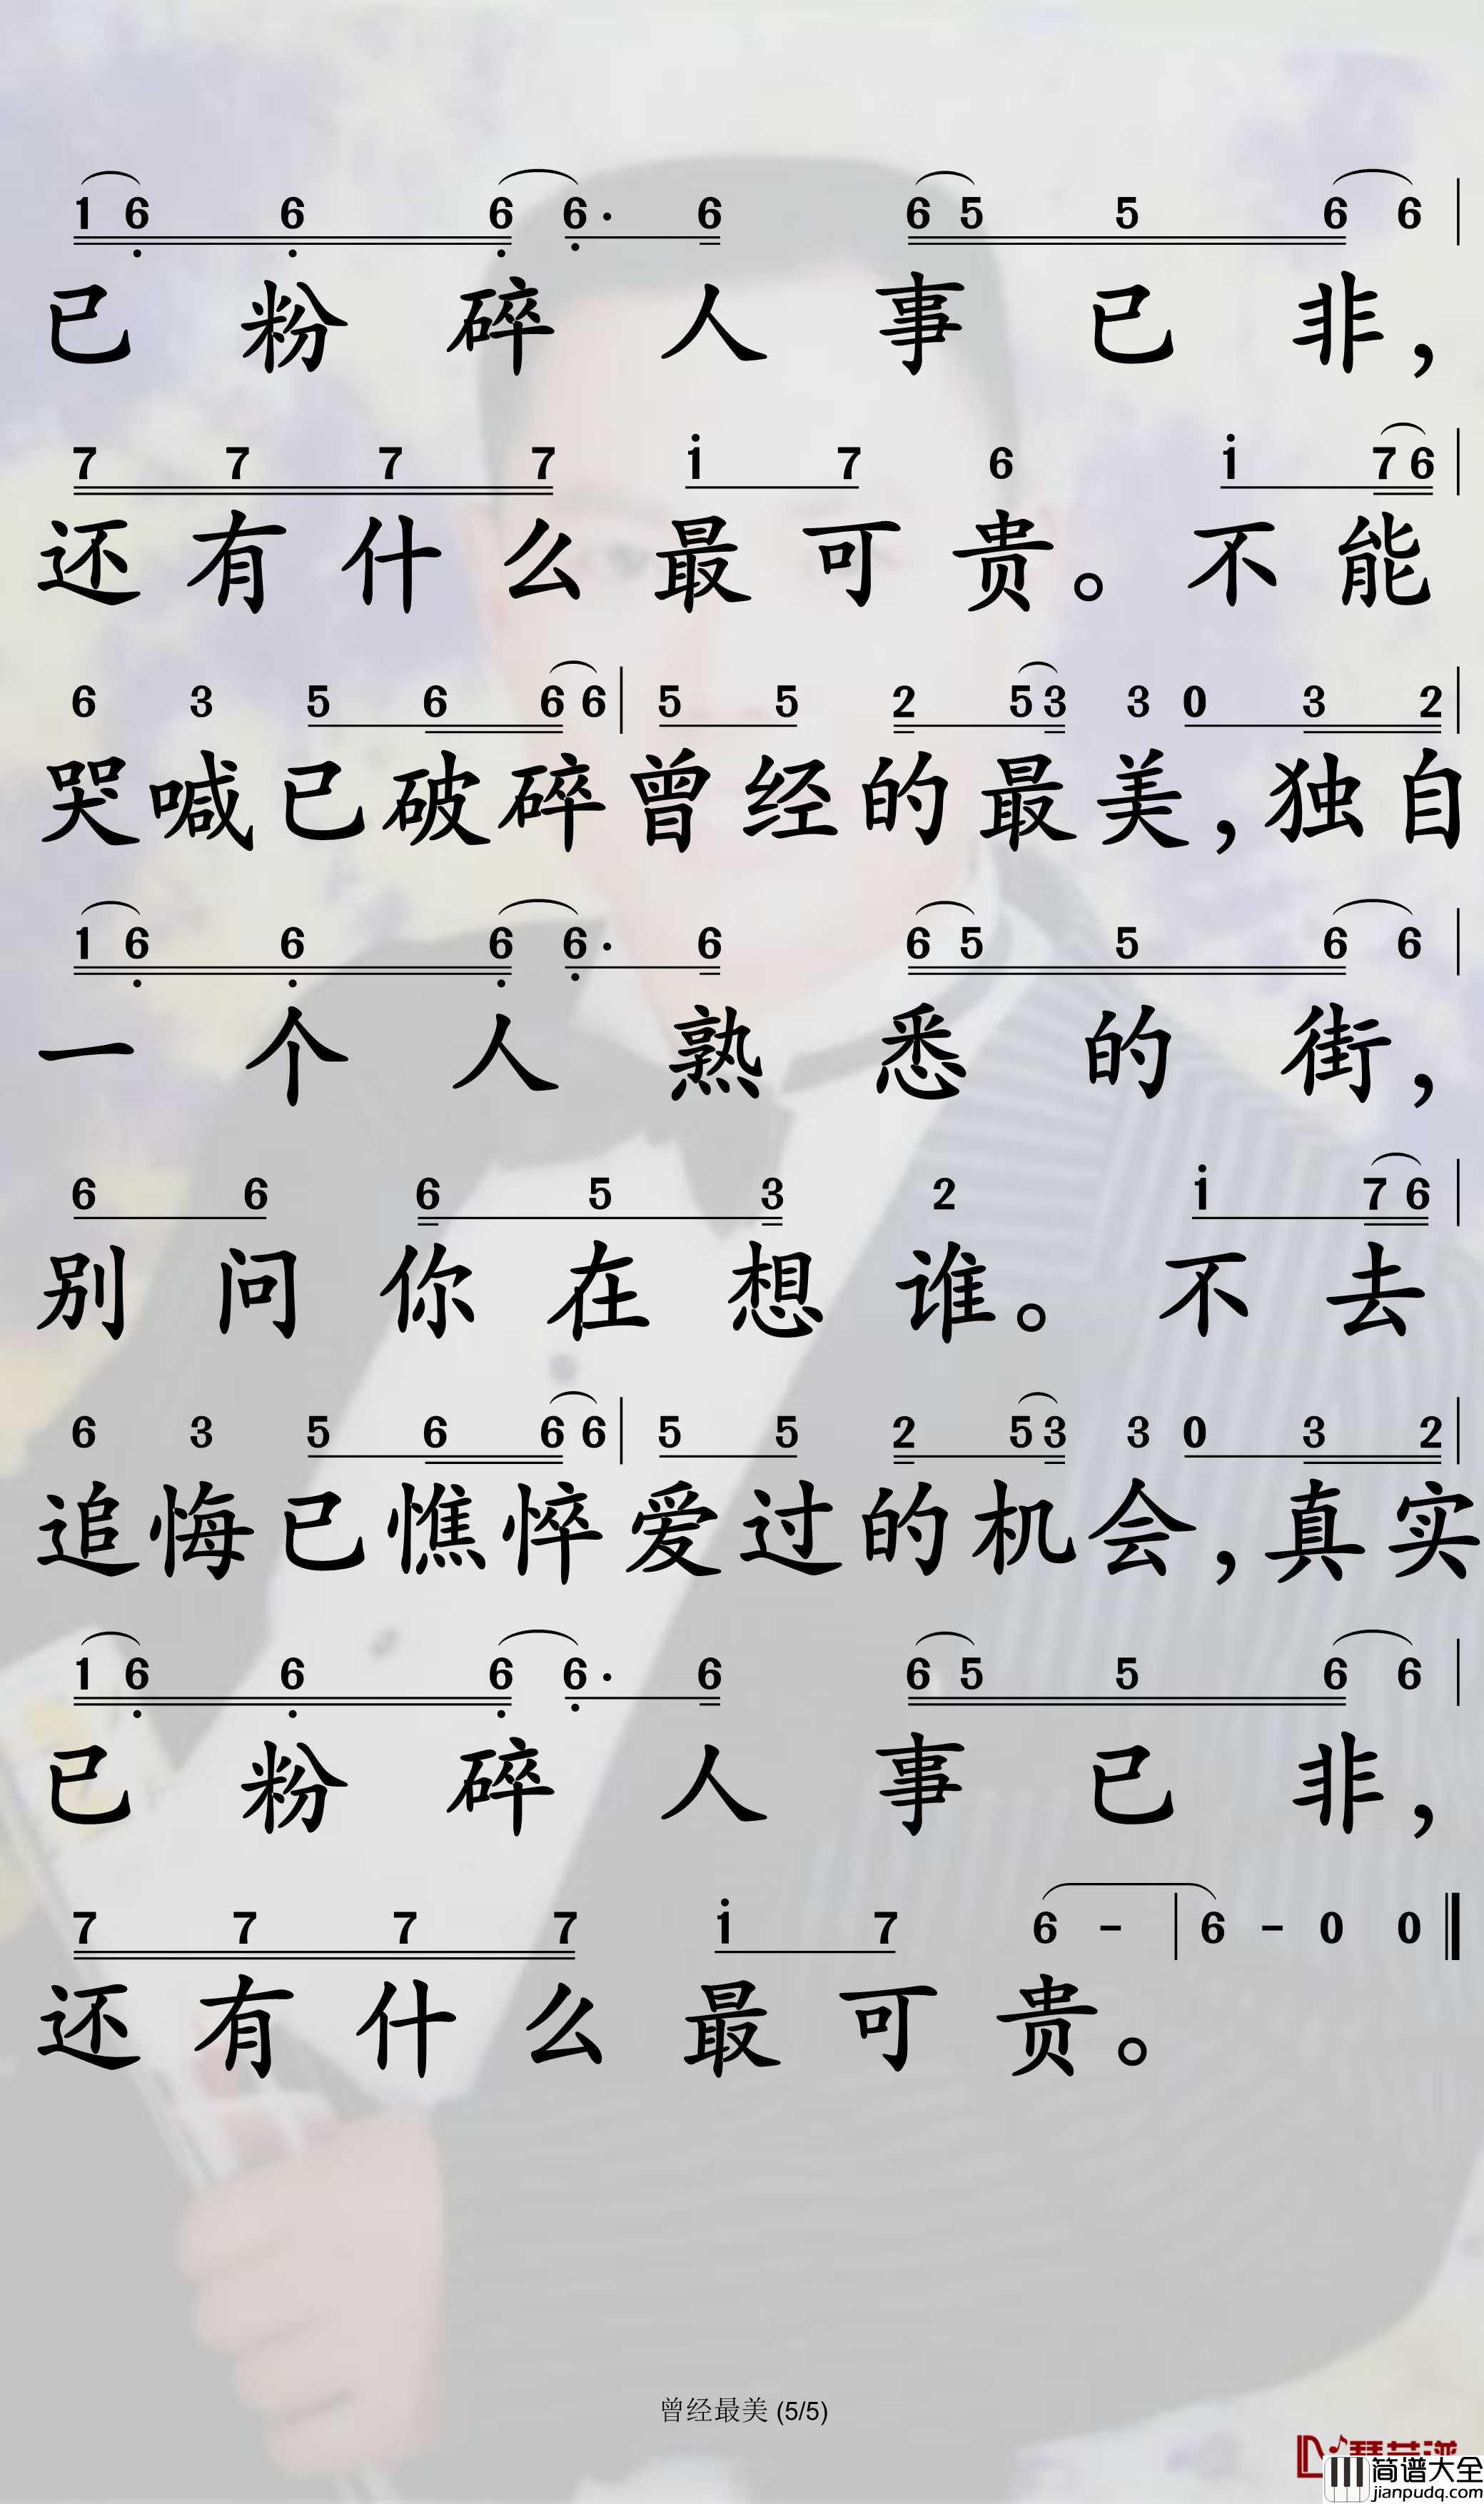 1 6 6 6 6· 6 6 5 5 6 6
已粉碎人事已非，
7 7 7 7 i 7 6 i 7 6
还有什么最可贵。不能
6 3 5 6 6 6 5 5 2 5 3 3 0 3 2
哭喊已破碎曾经的最美，独自
1 6 6 6 6· 6 6 5 5 6 6
一个人熟悉的街，
6 6 6 5 3 2 i 7 6
别问你在想谁。不去
6 3 5 6 6 6 5 5 2 5 3 3 0 3 2
追悔已憔悴爱过的机会，真实
1 6 6 6 6· 6 6 5 5 6 6
已粉碎人事已非，
7 7 7 7 i 7 6 - 6 - 0 0
还有什么最可贵。
曾经最美 (5/5)
简谱大全
jianpudq.com